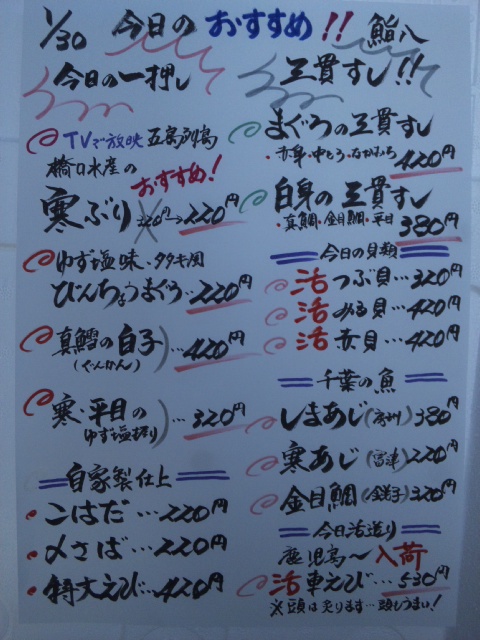 1/30 今日の おすすめ!! 鮨八
今日の一押し
TVで放映 五島列島
橋口水産の
おすすめ!
寒ぶり 320円→220円
ゆず塩味・タタキ風
びんちょうまぐろ…220円
真鱈の白子
(ぐんかん)
…420円
寒・平目の
ゆず塩握り
…320円
自家製仕上
こはだ…220円
〆さば…220円
特大えび…420円
三貫すし!!
まぐろの三貫すし
・赤身・中とろ・なかおち 420円
白身の三貫すし
・真鯛・金目鯛・平目 380円
今日の貝類
活つぶ貝…320円
活みる貝…420円
活赤貝…420円
千葉の魚
しまあじ(房州)380円
寒あじ(富津)220円
金目鯛(銚子)320円
今日活送り
鹿児島〜入荷
活車えび…530円
※頭は炙ります…頭もうまい!